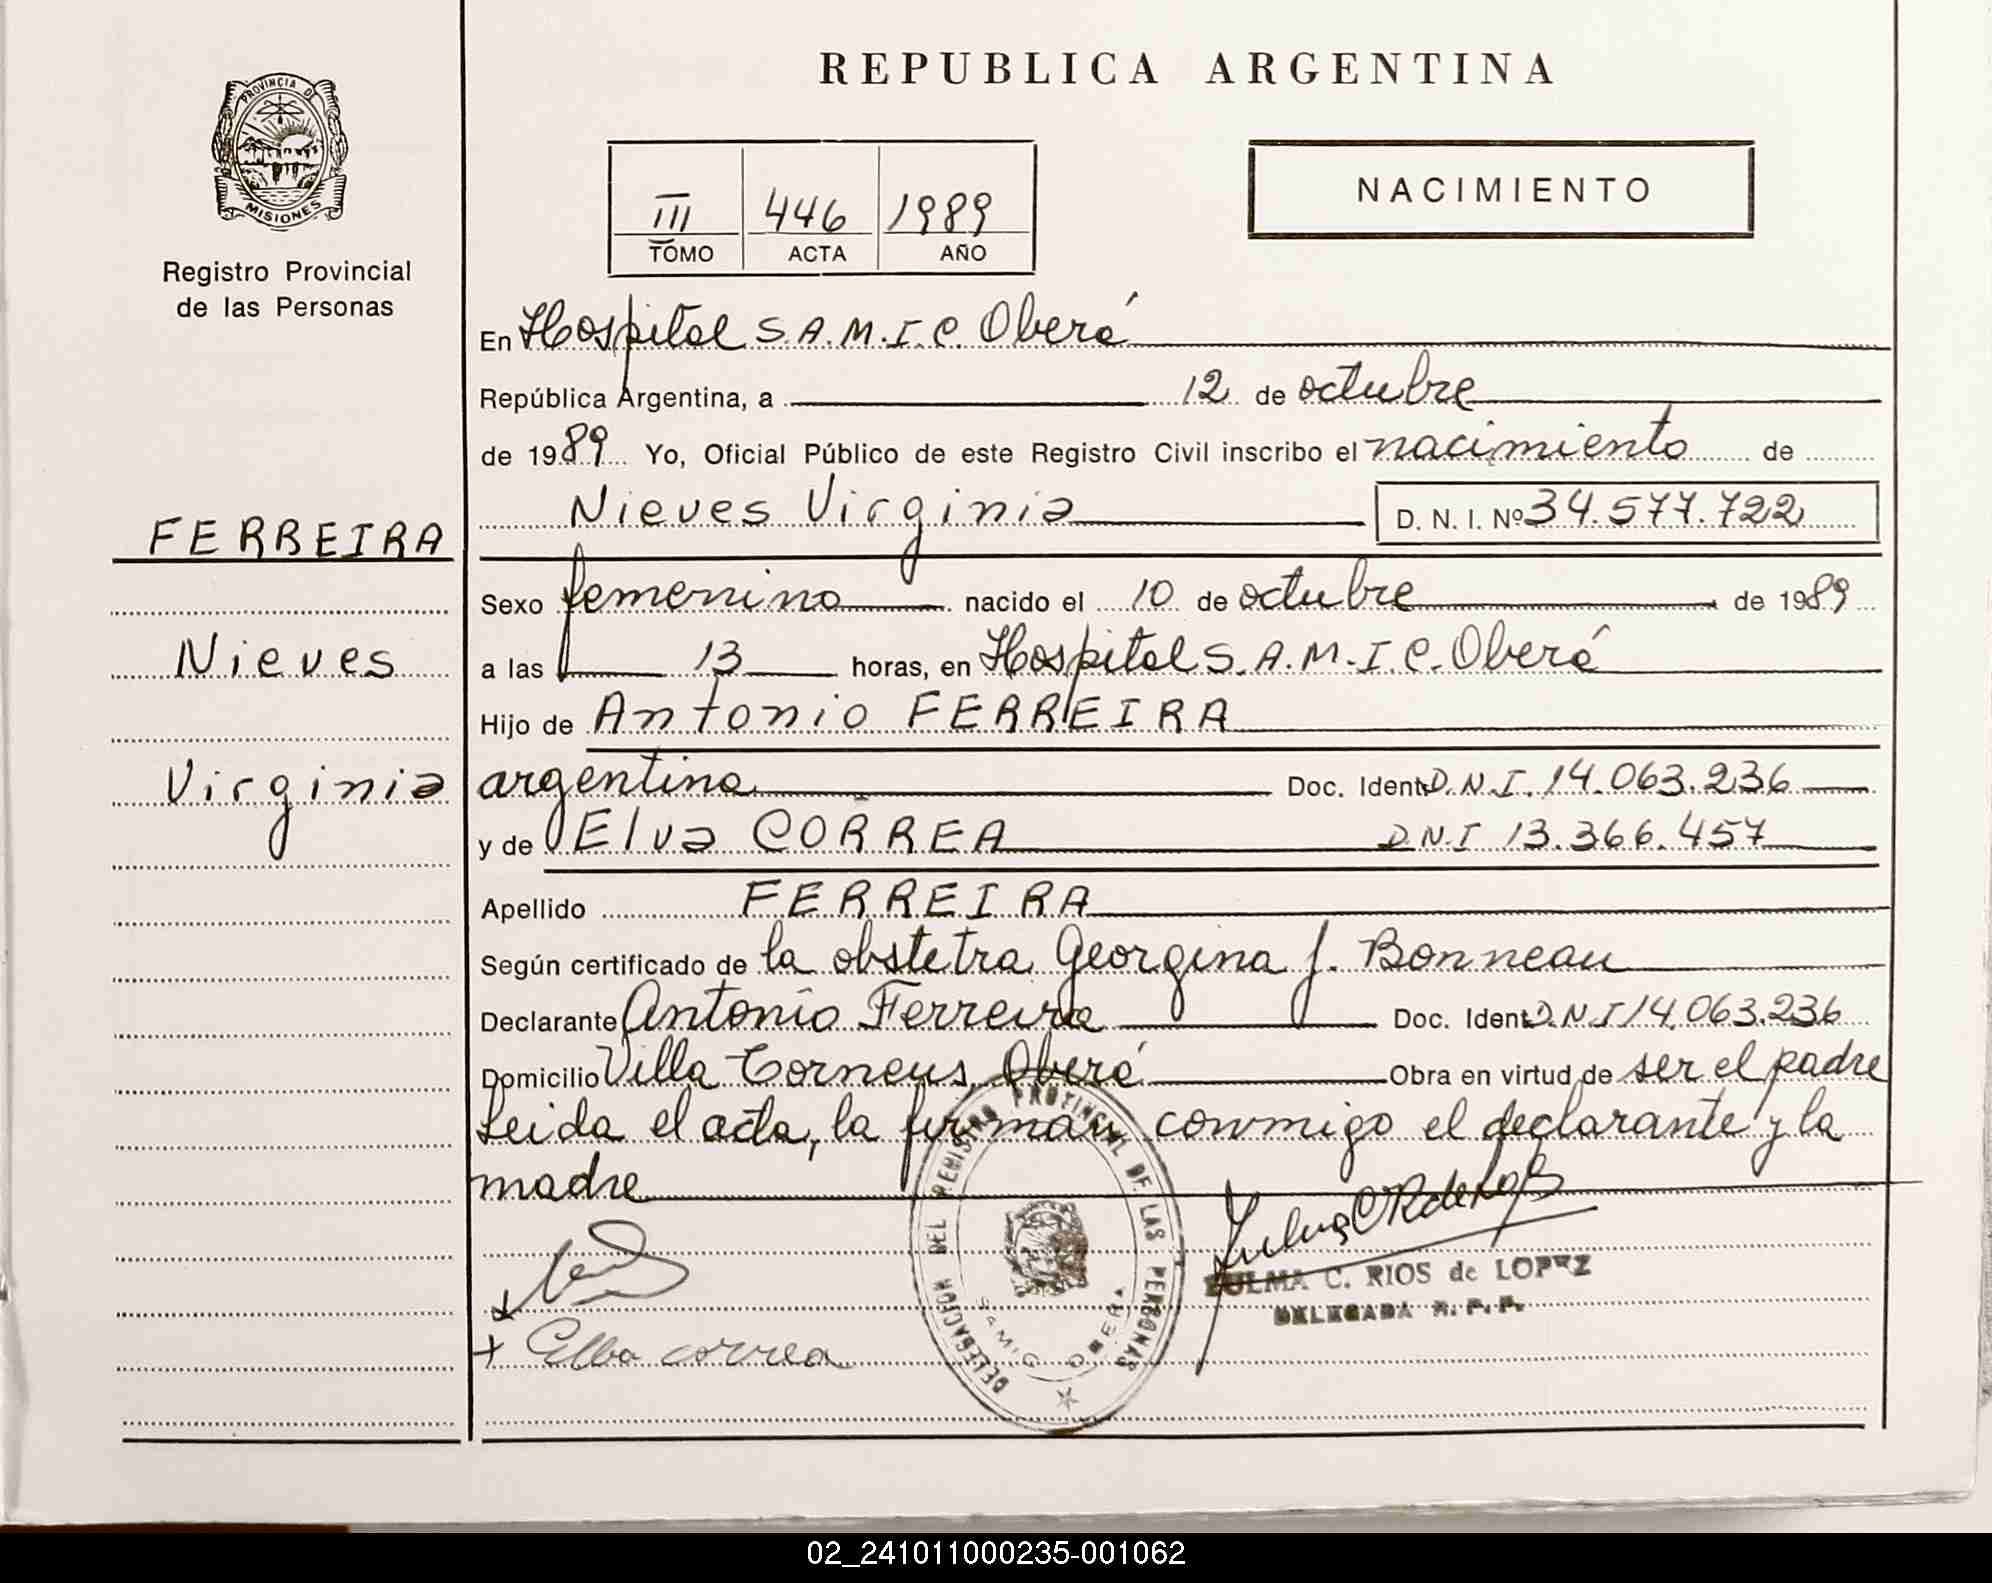 REPUBLICA ARGENTINA
PROVINCIA DE
MISIONES
Registro Provincial
de las Personas
NACIMIENTO
III 446 1989
TOMO ACTA AÑO
En Hospital S.A.M.I.C. Oberá
República Argentina, a 12 de octubre
de 1989 Yo, Oficial Público de este Registro Civil inscribo el nacimiento de
Nieves Virginia D. N. I. Nº 34.577.722
FERREIRA
Nieves
Virginia
Sexo femenino nacido el 10 de octubre de 1989
a las 13 horas, en Hospital S.A.M.I.C. Oberá
Hijo de Antonio FERREIRA
argentina Doc. Ident. D.N.I. 14.063.236
y de Elva CORREA D.N.I 13.366.457
Apellido FERREIRA
Según certificado de la obstetra Georgina J. Bonneau
Declarante Antonio Ferreira Doc. Ident. D.N.I 14.063.236
Domicilio Villa Torneus Oberá Obra en virtud de ser el padre
Leida el acta, la firman conmigo el declarante y la
madre
+ Elba correa
DELEGACION DEL REGISTRO PROVINCIAL DE LAS PERSONAS
SAMIC OBERA
ZULMA C. RIOS de LOPEZ
DELEGADA R. P. P.
02_241011000235-001062